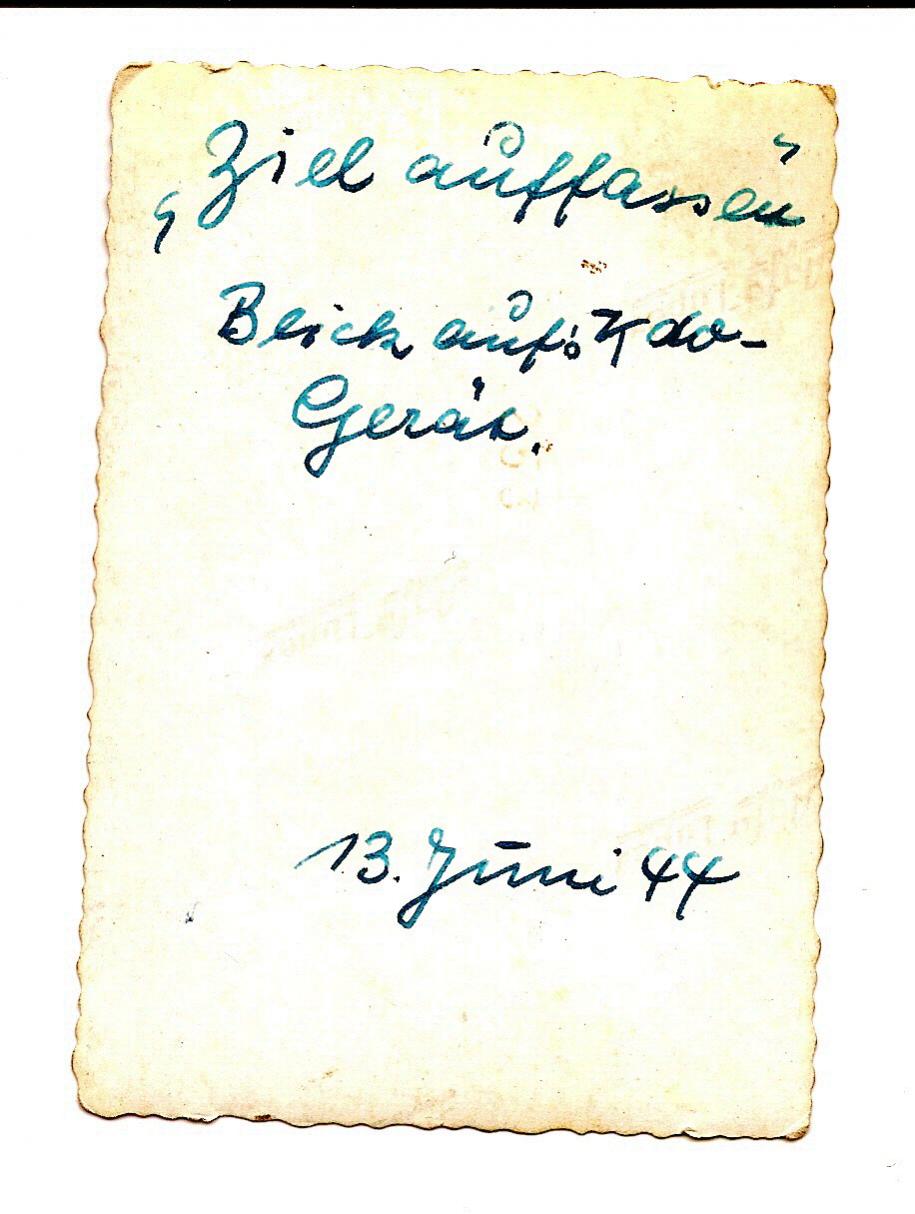 „Ziel auffassen"
Blick auf: Kdo-
Gerät.
13. Juni 44